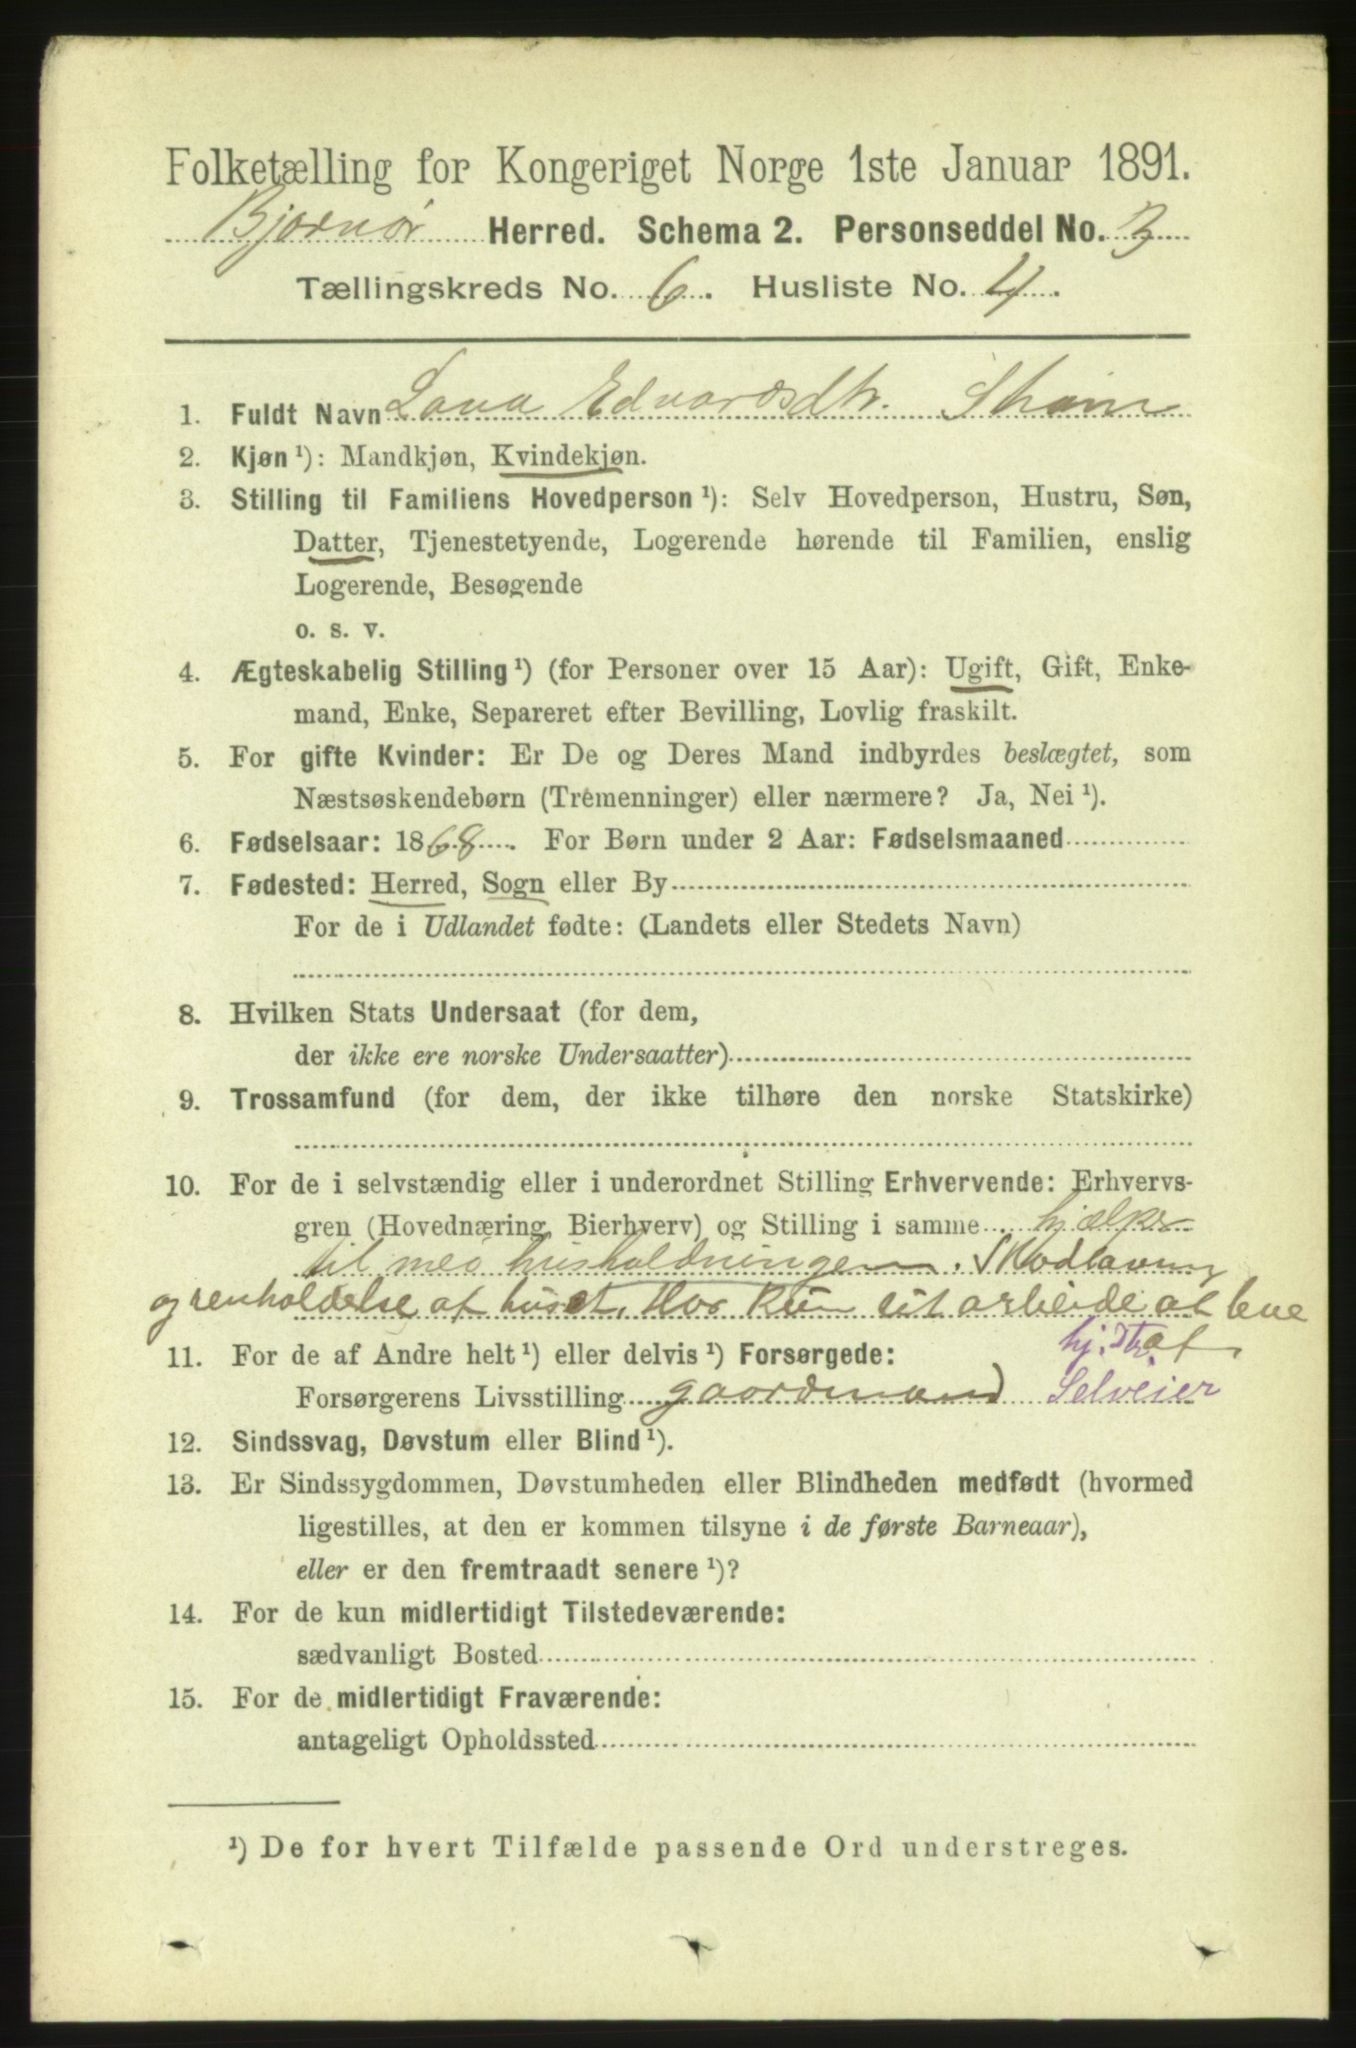 Folketælling for Kongeriget Norge 1ste Januar 1891.
Bjørnør Herred. Schema 2. Personseddel No. 3
Tællingskreds No. 6. Husliste No. 4.
1. Fuldt Navn Lava Edvardsdtr.
2. Kjøn ¹): Mandkjøn, Kvindekjøn.
3. Stilling til Familiens Hovedperson ¹): Selv Hovedperson, Hustru, Søn,
Datter, Tjenestetyende, Logerende hørende til Familien, enslig
Logerende, Besøgende
o. s. v.
4. Ægteskabelig Stilling ¹) (for Personer over 15 Aar): Ugift, Gift, Enke-
mand, Enke, Separeret efter Bevilling, Lovlig fraskilt.
5. For gifte Kvinder: Er De og Deres Mand indbyrdes beslægtet, som
Næstsøskendebørn (Tremenninger) eller nærmere? Ja, Nei ¹).
6. Fødselsaar: 1868. For Børn under 2 Aar: Fødselsmaaned
7. Fødested: Herred, Sogn eller By
For de i Udlandet fødte: (Landets eller Stedets Navn)
8. Hvilken Stats Undersaat (for dem,
der ikke ere norske Undersaatter)
9. Trossamfund (for dem, der ikke tilhøre den norske Statskirke)
10. For de i selvstændig eller i underordnet Stilling Erhvervende: Erhvervs-
gren (Hovednæring, Bierhverv) og Stilling i samme hjælper
til med husholdningen. Madlavning
og renholdelse af huset. Har kun sit arbeide at leve
af
11. For de af Andre helt ¹) eller delvis ¹) Forsørgede: hj. Dtr.
Forsørgerens Livsstilling gaardmand Selveier
12. Sindssvag, Døvstum eller Blind ¹).
13. Er Sindssygdommen, Døvstumheden eller Blindheden medfødt (hvormed
ligestilles, at den er kommen tilsyne i de første Barneaar),
eller er den fremtraadt senere ¹)?
14. For de kun midlertidigt Tilstedeværende:
sædvanligt Bosted
15. For de midlertidigt Fraværende:
antageligt Opholdssted
¹) De for hvert Tilfælde passende Ord understreges.